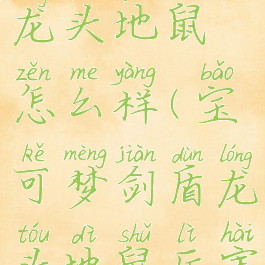 龙头地鼠
zěn me yàng bǎo
怎么样(宝
kě mèng jiàn dùn lóng
可梦剑盾龙
tóu dì shǔ lì hài
头地鼠厉害